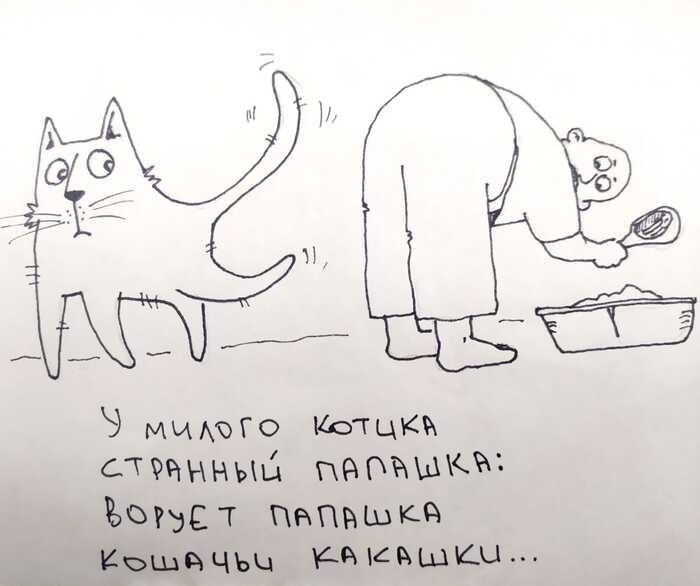 У МИЛОГО КОТИКА
СТРАННЫЙ ПАПАШКА:
ВОРУЕТ ПАПАШКА
КОШАЧЬИ КАКАШКИ...